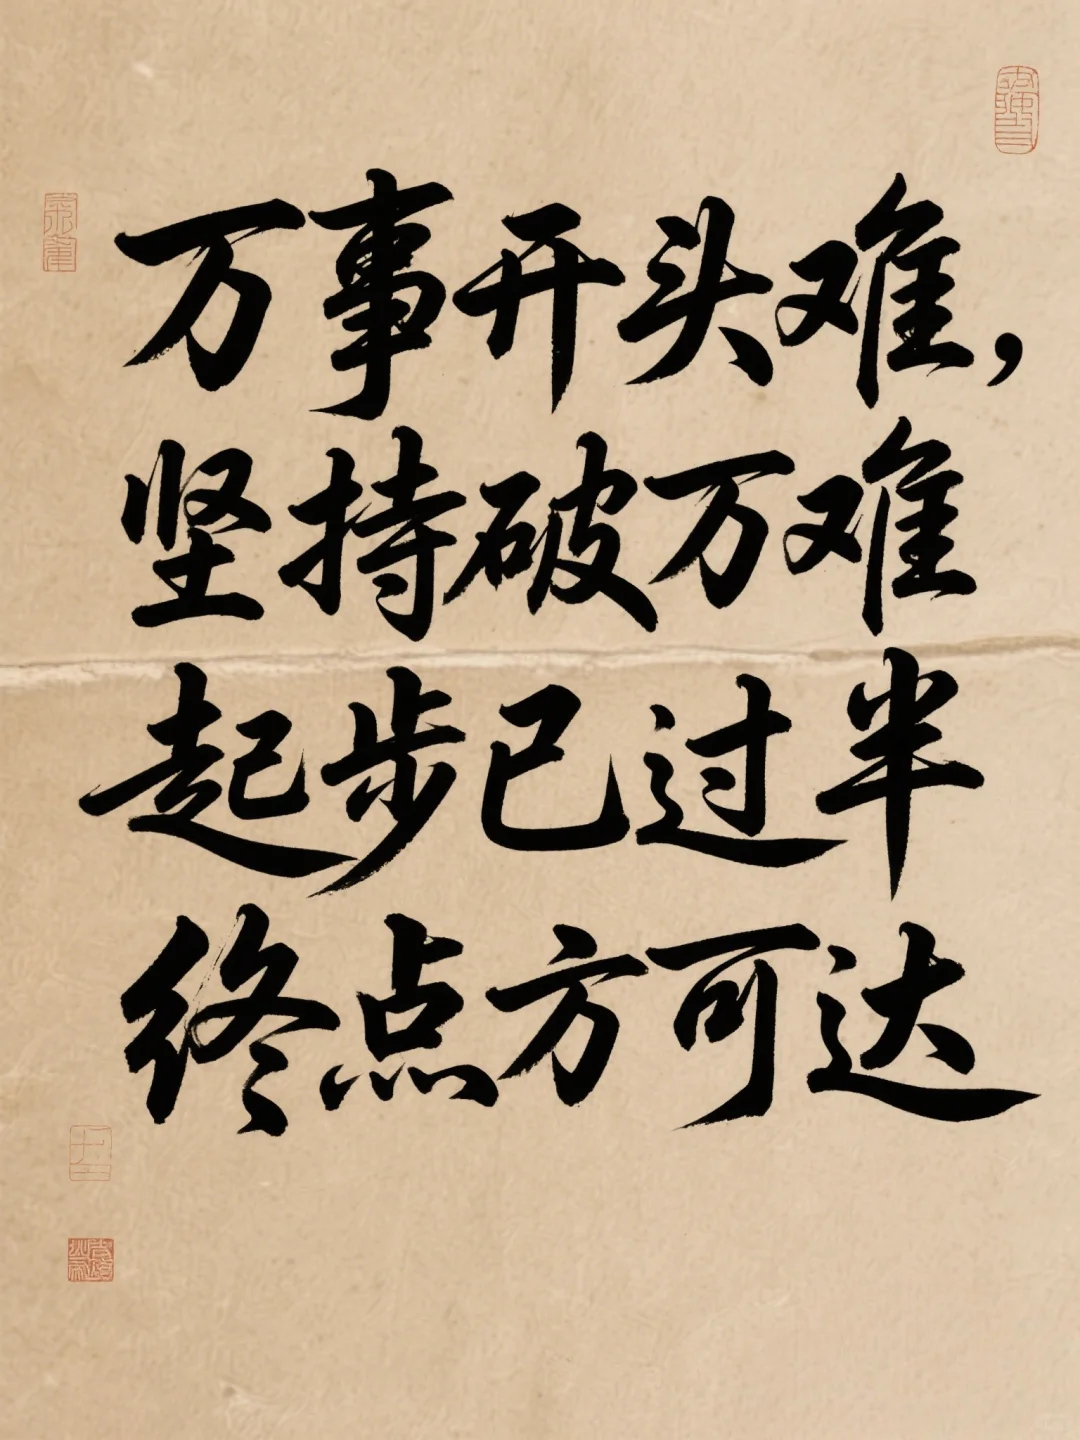 万事开头难，
坚持破万难
起步已过半
终点方可达